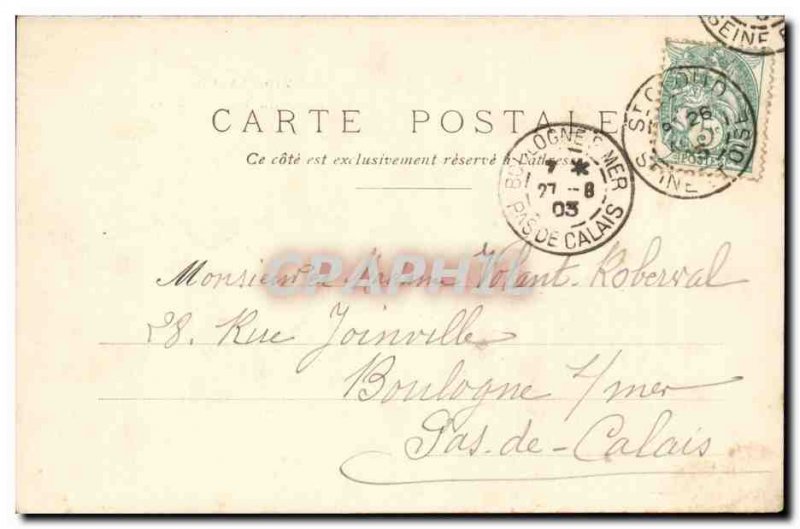 CARTE POSTALE
Ce côté est exclusivement réservé à l'adresse
BOULOGNE S. MER
7 *
27 - 8
03
PAS DE CALAIS
ST CLOUD
26
SEINE ET OISE
POSTES
SEINE
CARAPHIL
Monsieur et Madame Volant-Roberval
28, Rue Joinville
Boulogne s/mer
Pas-de-Calais